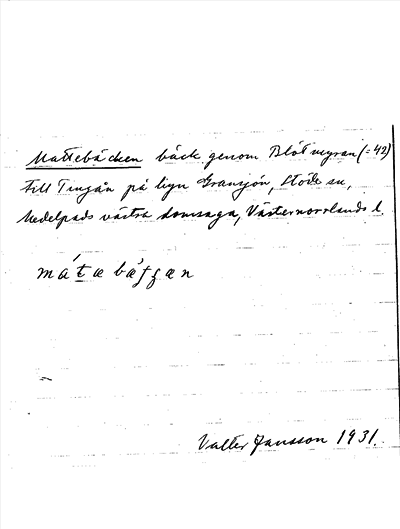 Mattebäcken bäck genom Blötmyran (=42)
till Tunjån på byn Gransjön, Stöde sn,
Medelpads västra domsaga, Västernorrlands l.
Valter Jansson 1931.